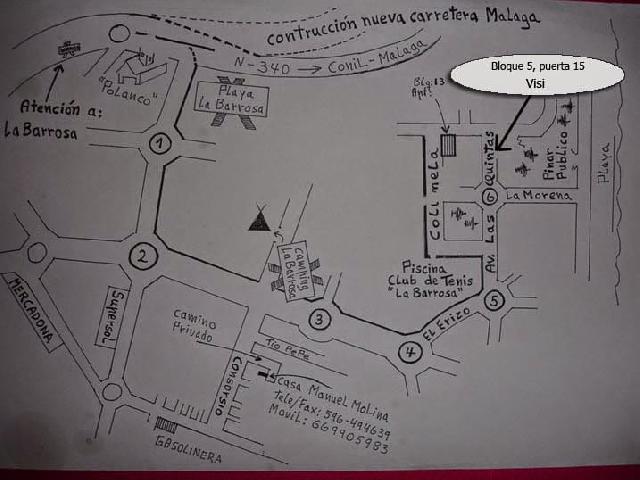 contrucción nueva carretera Malaga
N-340 → Conil-Malaga
"Polanco"
Playa
La Barrosa
Atención a:
La Barrosa
Bloque 5, puerta 15
Visi
Pinar
Publico
Playa
1
Colinela
Av. Las Quintas
6
La Morena
2
camping
La Barrosa
Piscina
Club de Tenis
"La Barrosa"
5
3
El Erizo
4
MERCADONA
Supersol
Camino
Privado
Tio Pepe
Consorsio
Casa Manuel Molina
Tele/Fax: 596-494639
Movil: 669905983
GASOLINERA